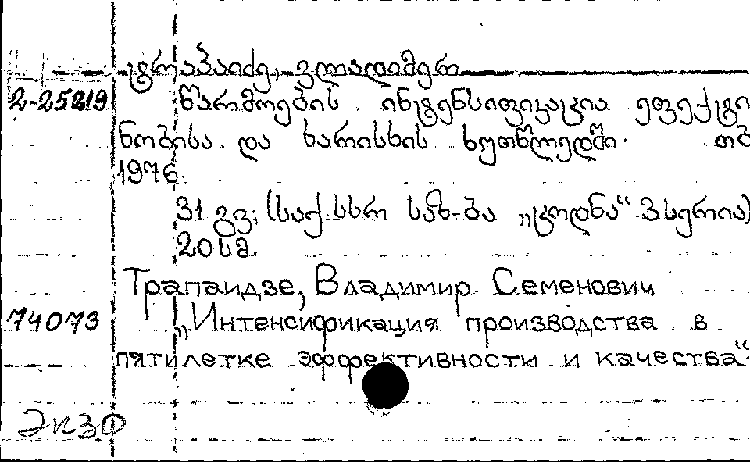 ტრაპაიძე, ვლადიმერ
2-25219 წარმოების ინტენსიფიკაცია ეფექტი
ნობისა და ხარისხის ხუთწლედში. თბ
1976.
31 გვ; (საქ.სსრ საზ-ბა „ცოდნა“ 3 სერია)
20 სმ.
Трапаидзе, Владимир Семенович
74073 „Интенсификация производства в
пятилетке эффективности и качества“
Экз Ф